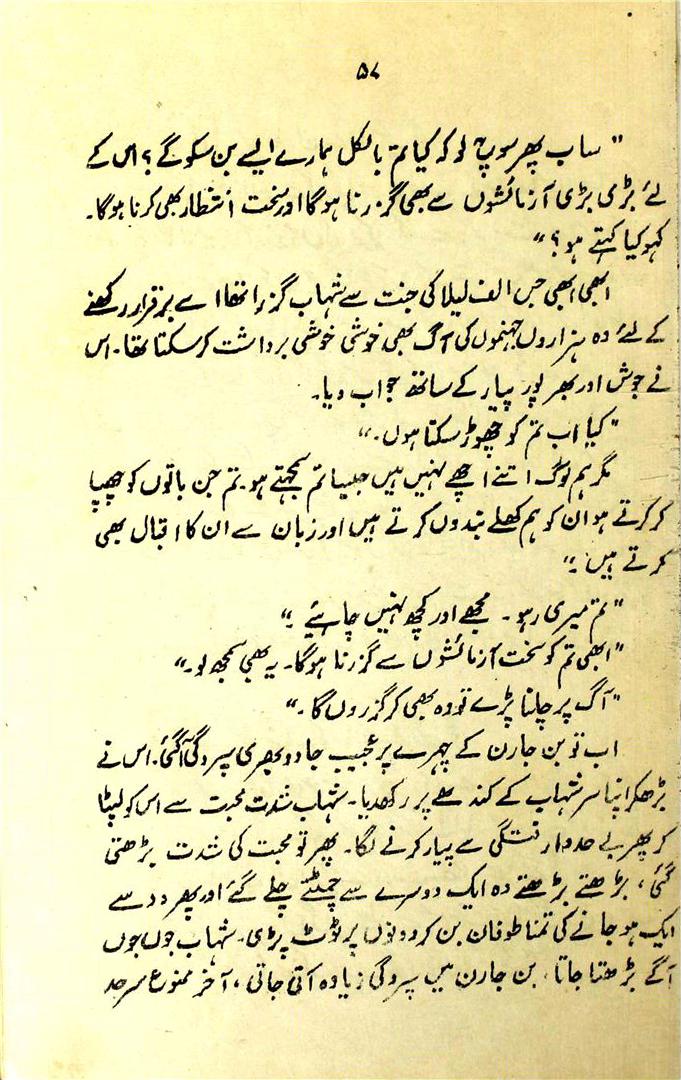 ۵۷
" ساب پھر سوچ لو کہ کیا تم بالکل ہمارے ایسے بن سکو گے؟ اس کے
لئے بڑی بڑی آزمائشوں سے بھی گزرنا ہوگا اور سخت انتظار بھی کرنا ہوگا۔
کہو کیا کہتے ہو؟ "
ابھی ابھی جس الف لیلا کی جنت سے شہاب گزرا تھا اسے برقرار رکھنے
کے لئے وہ ہزاروں جہنموں کی آگ بھی خوشی خوشی برداشت کر سکتا تھا۔ اس
نے جوش اور بھرپور پیار کے ساتھ جواب دیا۔
" کیا اب تم کو چھوڑ سکتا ہوں۔ "
مگر ہم لوگ اتنے اچھے نہیں ہیں جیسا تم سمجھتے ہو۔ تم جن باتوں کو چھپا
کر کرتے ہو ان کو ہم کھلے بندوں کرتے ہیں اور زبان سے ان کا اقبال بھی
کرتے ہیں۔ "
" تم میری رہو۔ مجھے اور کچھ نہیں چاہئیے۔ "
" ابھی تم کو سخت آزمائشوں سے گزرنا ہوگا۔ یہ بھی سمجھ لو۔ "
" آگ پر چلنا پڑے تو وہ بھی کر گزروں گا۔ "
اب تو بن جارن کے چہرے پر عجیب جادو بھری سپردگی آگئی۔ اس نے
بڑھکر اپنا سر شہاب کے کندھے پر رکھدیا۔ شہاب شدت محبت سے اس کو لپٹا
کر پھر بے حد وارفتگی سے پیار کرنے لگا۔ پھر تو محبت کی شدت بڑھتی
گئی، بڑھتے بڑھتے وہ ایک دوسرے سے چمٹتے چلے گئے اور پھر دو سے
ایک ہو جانے کی تمنا طوفان بن کر دونوں پر ٹوٹ پڑی۔ شہاب جوں جوں
آگے بڑھتا جاتا، بن جارن میں سپردگی زیادہ آتی جاتی، آخر ممنوع سرحد